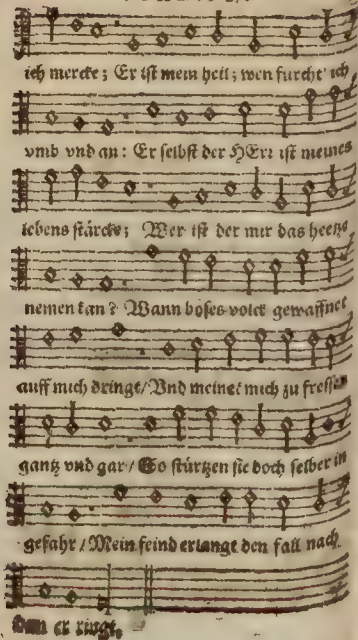 ich mercke; Er ist mein heil; wen fürcht' ich
vmb vnd an: Er selbst der HErr ist meines
lebens stärcke; Wer ist der mir das hertze
nemen kan? Wann böses volck gewaffnet
auff mich dringt/ Vnd meinet mich zu fressen
gantz vnd gar/ So stürtzen sie doch selber in
gefahr/ Mein feind erlanget den fall nach
dem er ringt.